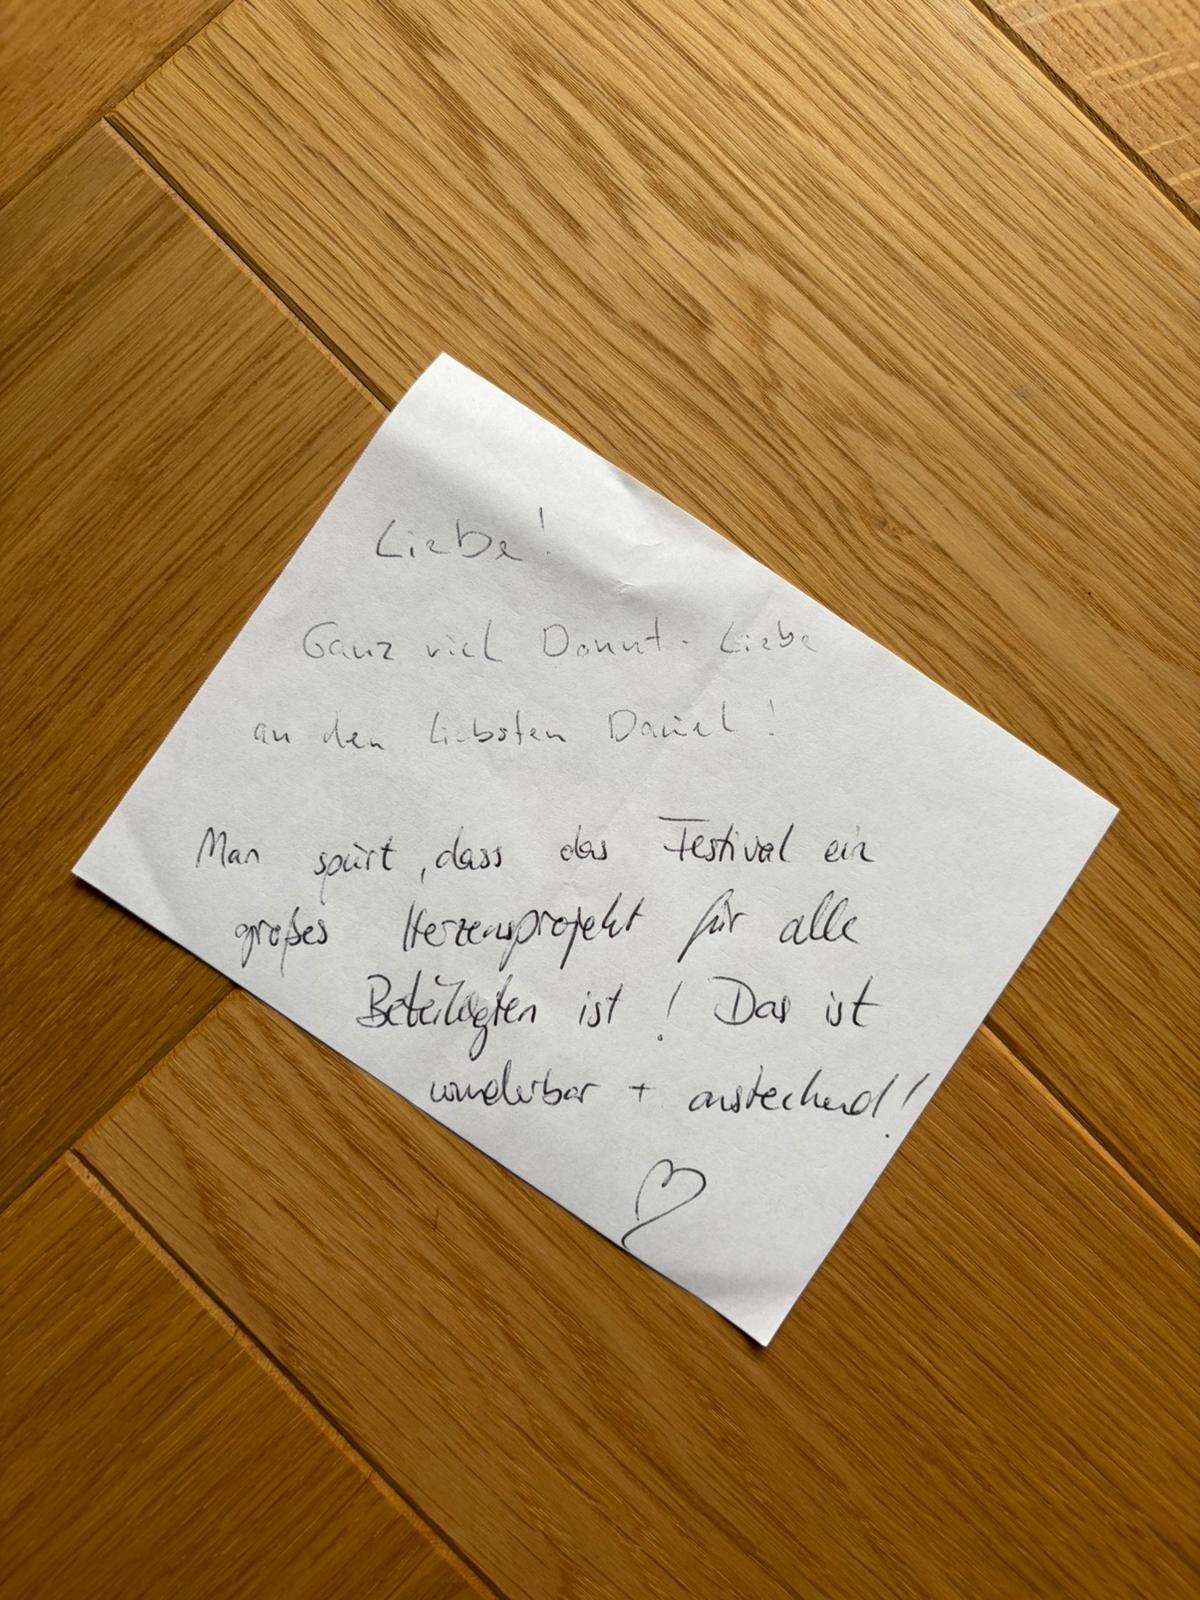 Liebe!
Ganz viel Donut-Liebe
an den liebsten Daniel!
Man spürt, dass das Festival ein
großes Herzensprojekt für alle
Beteiligten ist! Das ist
wunderbar + ansteckend!